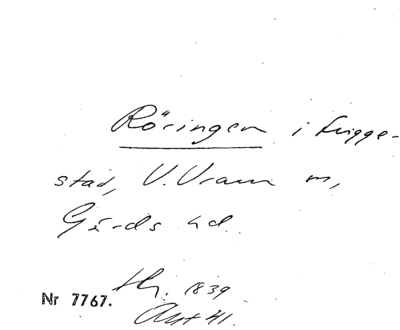 Röringen i Frigge-
stad, V. Vram m,
Gärds hd.
Nr 7767.
1839
Akt 41.